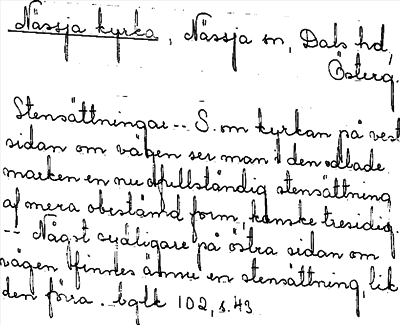 Nässja kyrka, Nässja sn, Dals hd,
Österg.
Stensättningar -- S. om kyrkan på vest
sidan om vägen ser man i den odlade
marken en nu ofullständig stensättning
af mera obestämd form, kanske tresidig.
-- Något sydligare på östra sidan om
vägen finnes ännu en stensättning, lik
den förra. bglt 102, s. 43